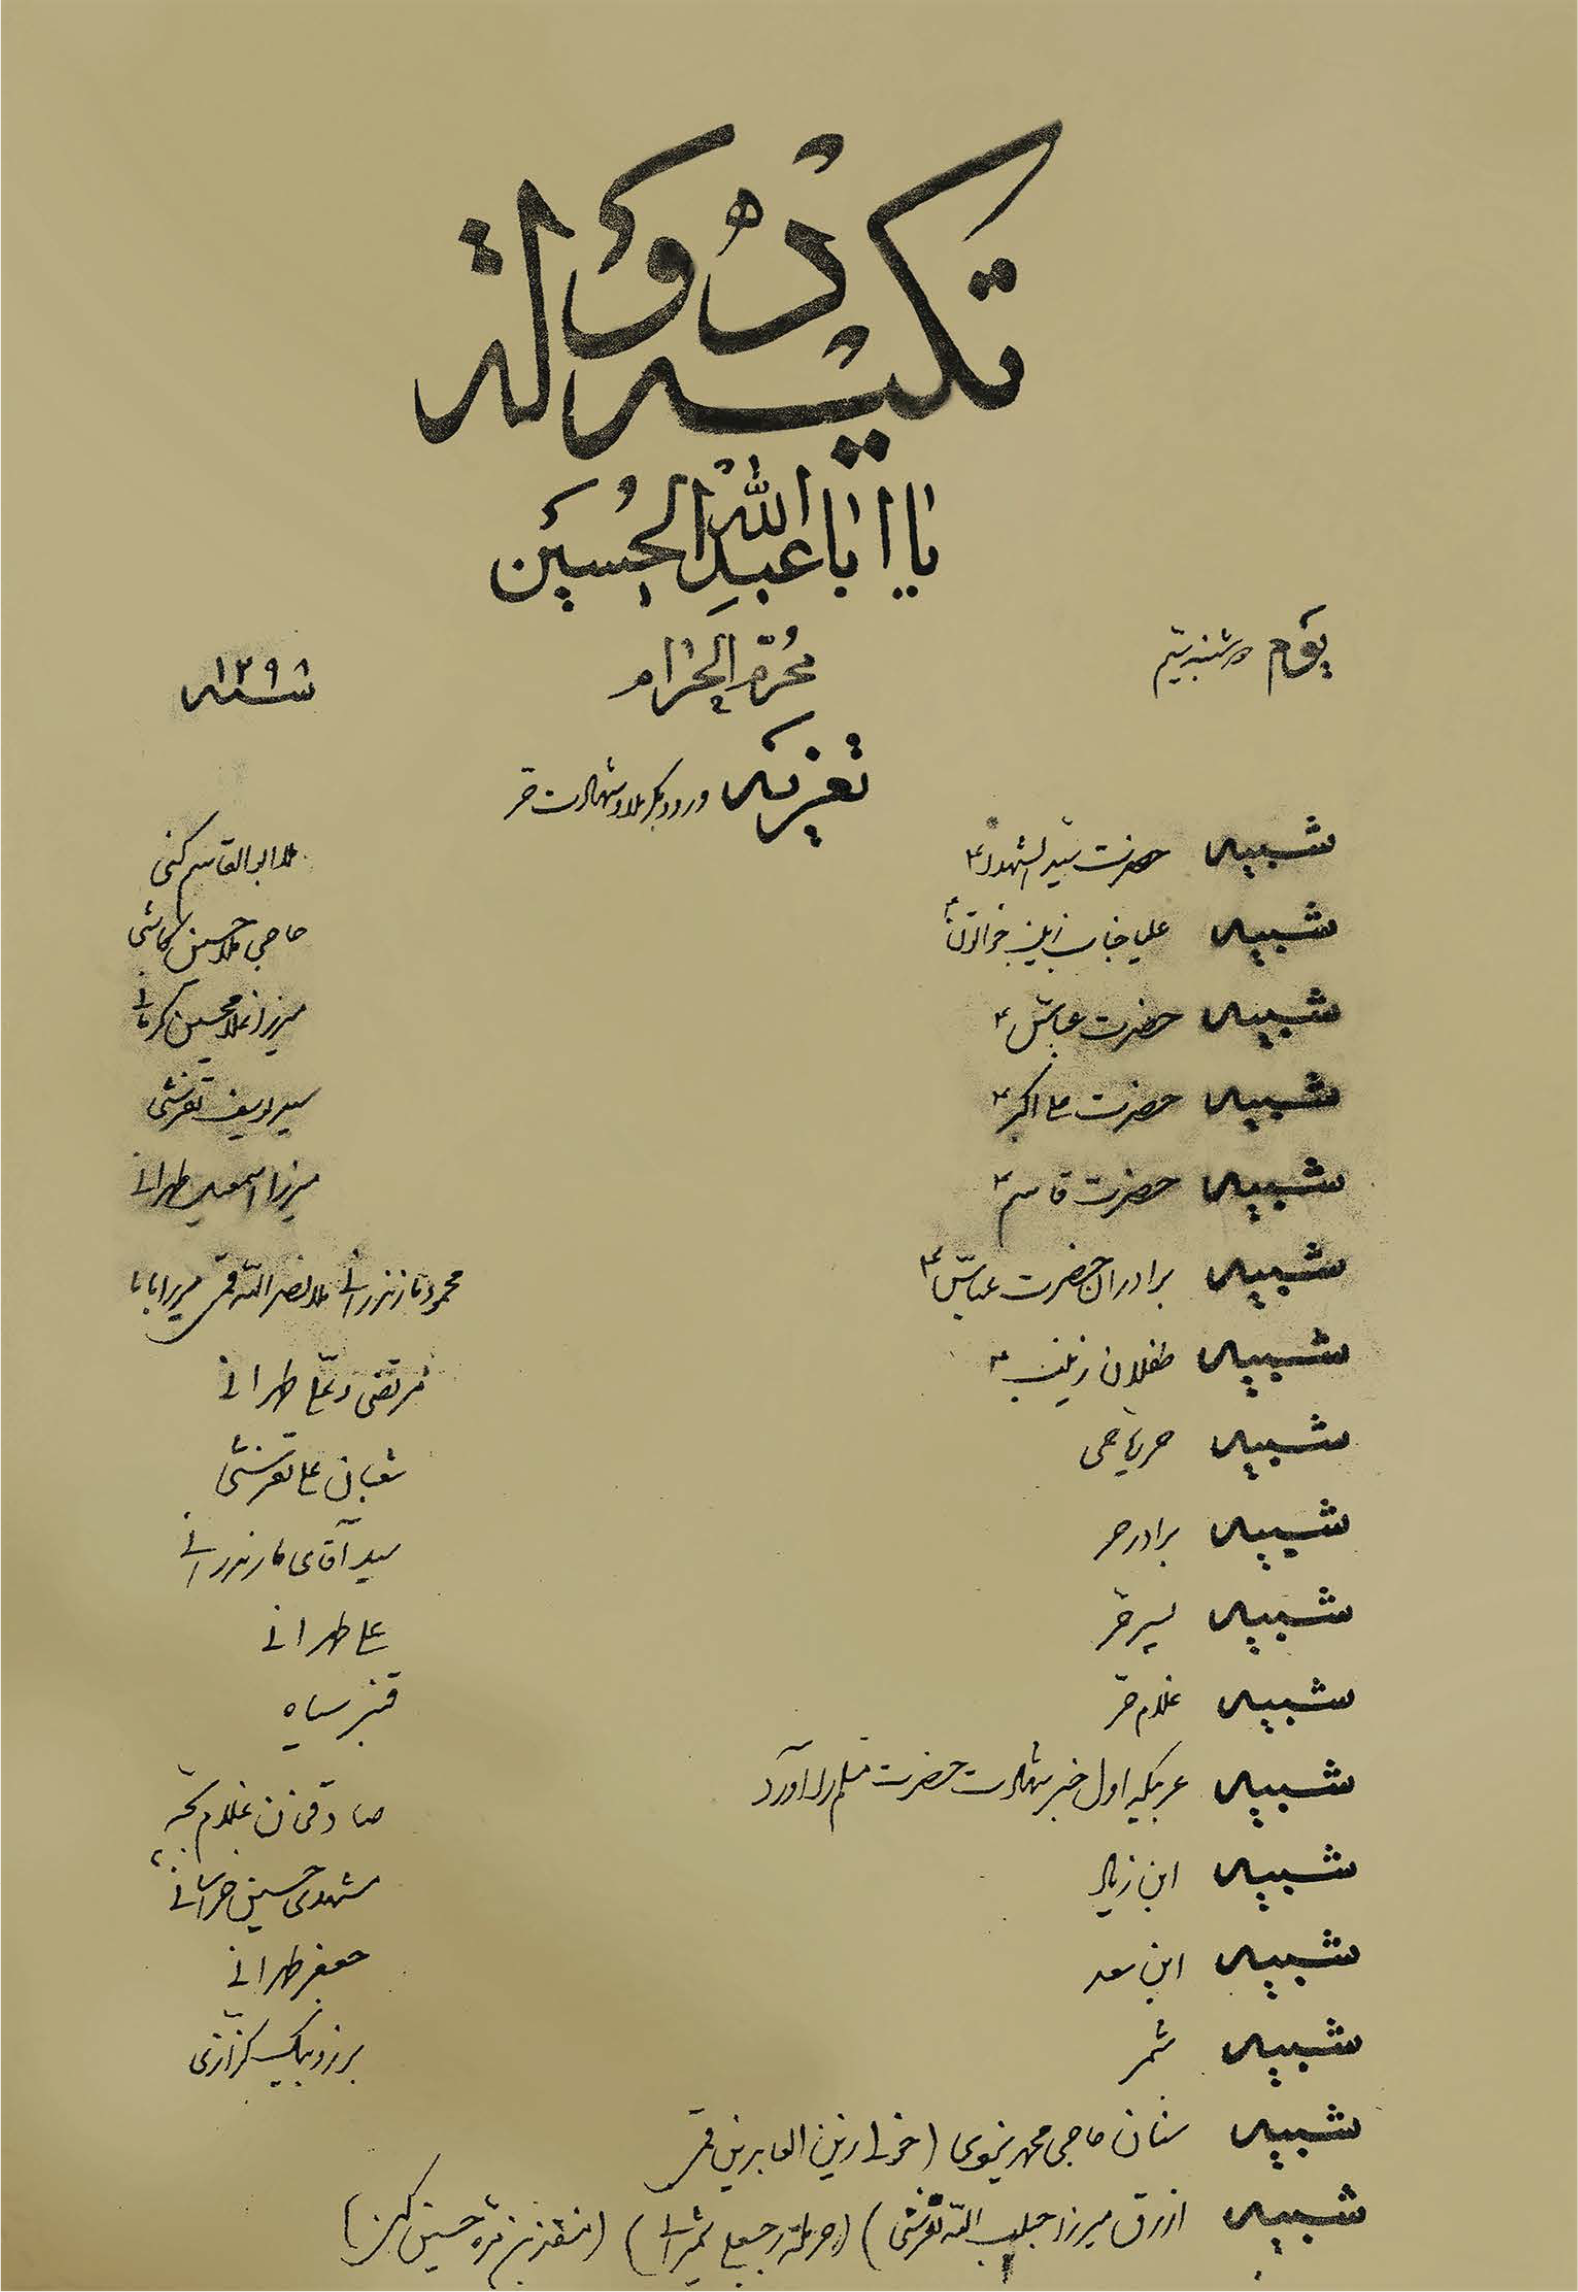 تکیه دولة
یا ابا عبد الله الحسین
یوم دوشنبه بیستم محرم الحرام سنه ۱۲۹۸
تعزیه ورود بکربلا و شهادت حر
شبیه حضرت سید الشهداء ع ملا ابوالقاسم کنی
شبیه علیا جناب زینب خواتون ع حاجی ملا حسین کاشی
شبیه حضرت عباس ع میرزا غلامحسین کرمانی
شبیه حضرت علی اکبر ع سید یوسف تفرشی
شبیه حضرت قاسم ع میرزا اسمعیل طهرانی
شبیه برادران حضرت عباس ع محمود مازندرانی ملا نصرالله قمی میرزا بابا
شبیه طفلان زینب ع مرتضی و علی طهرانی
شبیه حر ریاحی شعبان علی تفرشی
شبیه برادر حر سید آقای مازندرانی
شبیه پسر حر علی طهرانی
شبیه غلام حر قنبر سیاه
شبیه عربیکه اول خبر شهادت حضرت مسلم را آورد صادق غلام بچه
شبیه ابن زیاد مشهدی حسین خراسانی
شبیه ابن سعد جعفر طهرانی
شبیه شمر برزو بیک کزازی
شبیه سنان حاجی محمد (خولی زین العابدین قمی
شبیه ازرق میرزا حبیب الله تفرشی) (حرمله رجبعلی شمیرانی) (منقذ بن مره حسین کن)